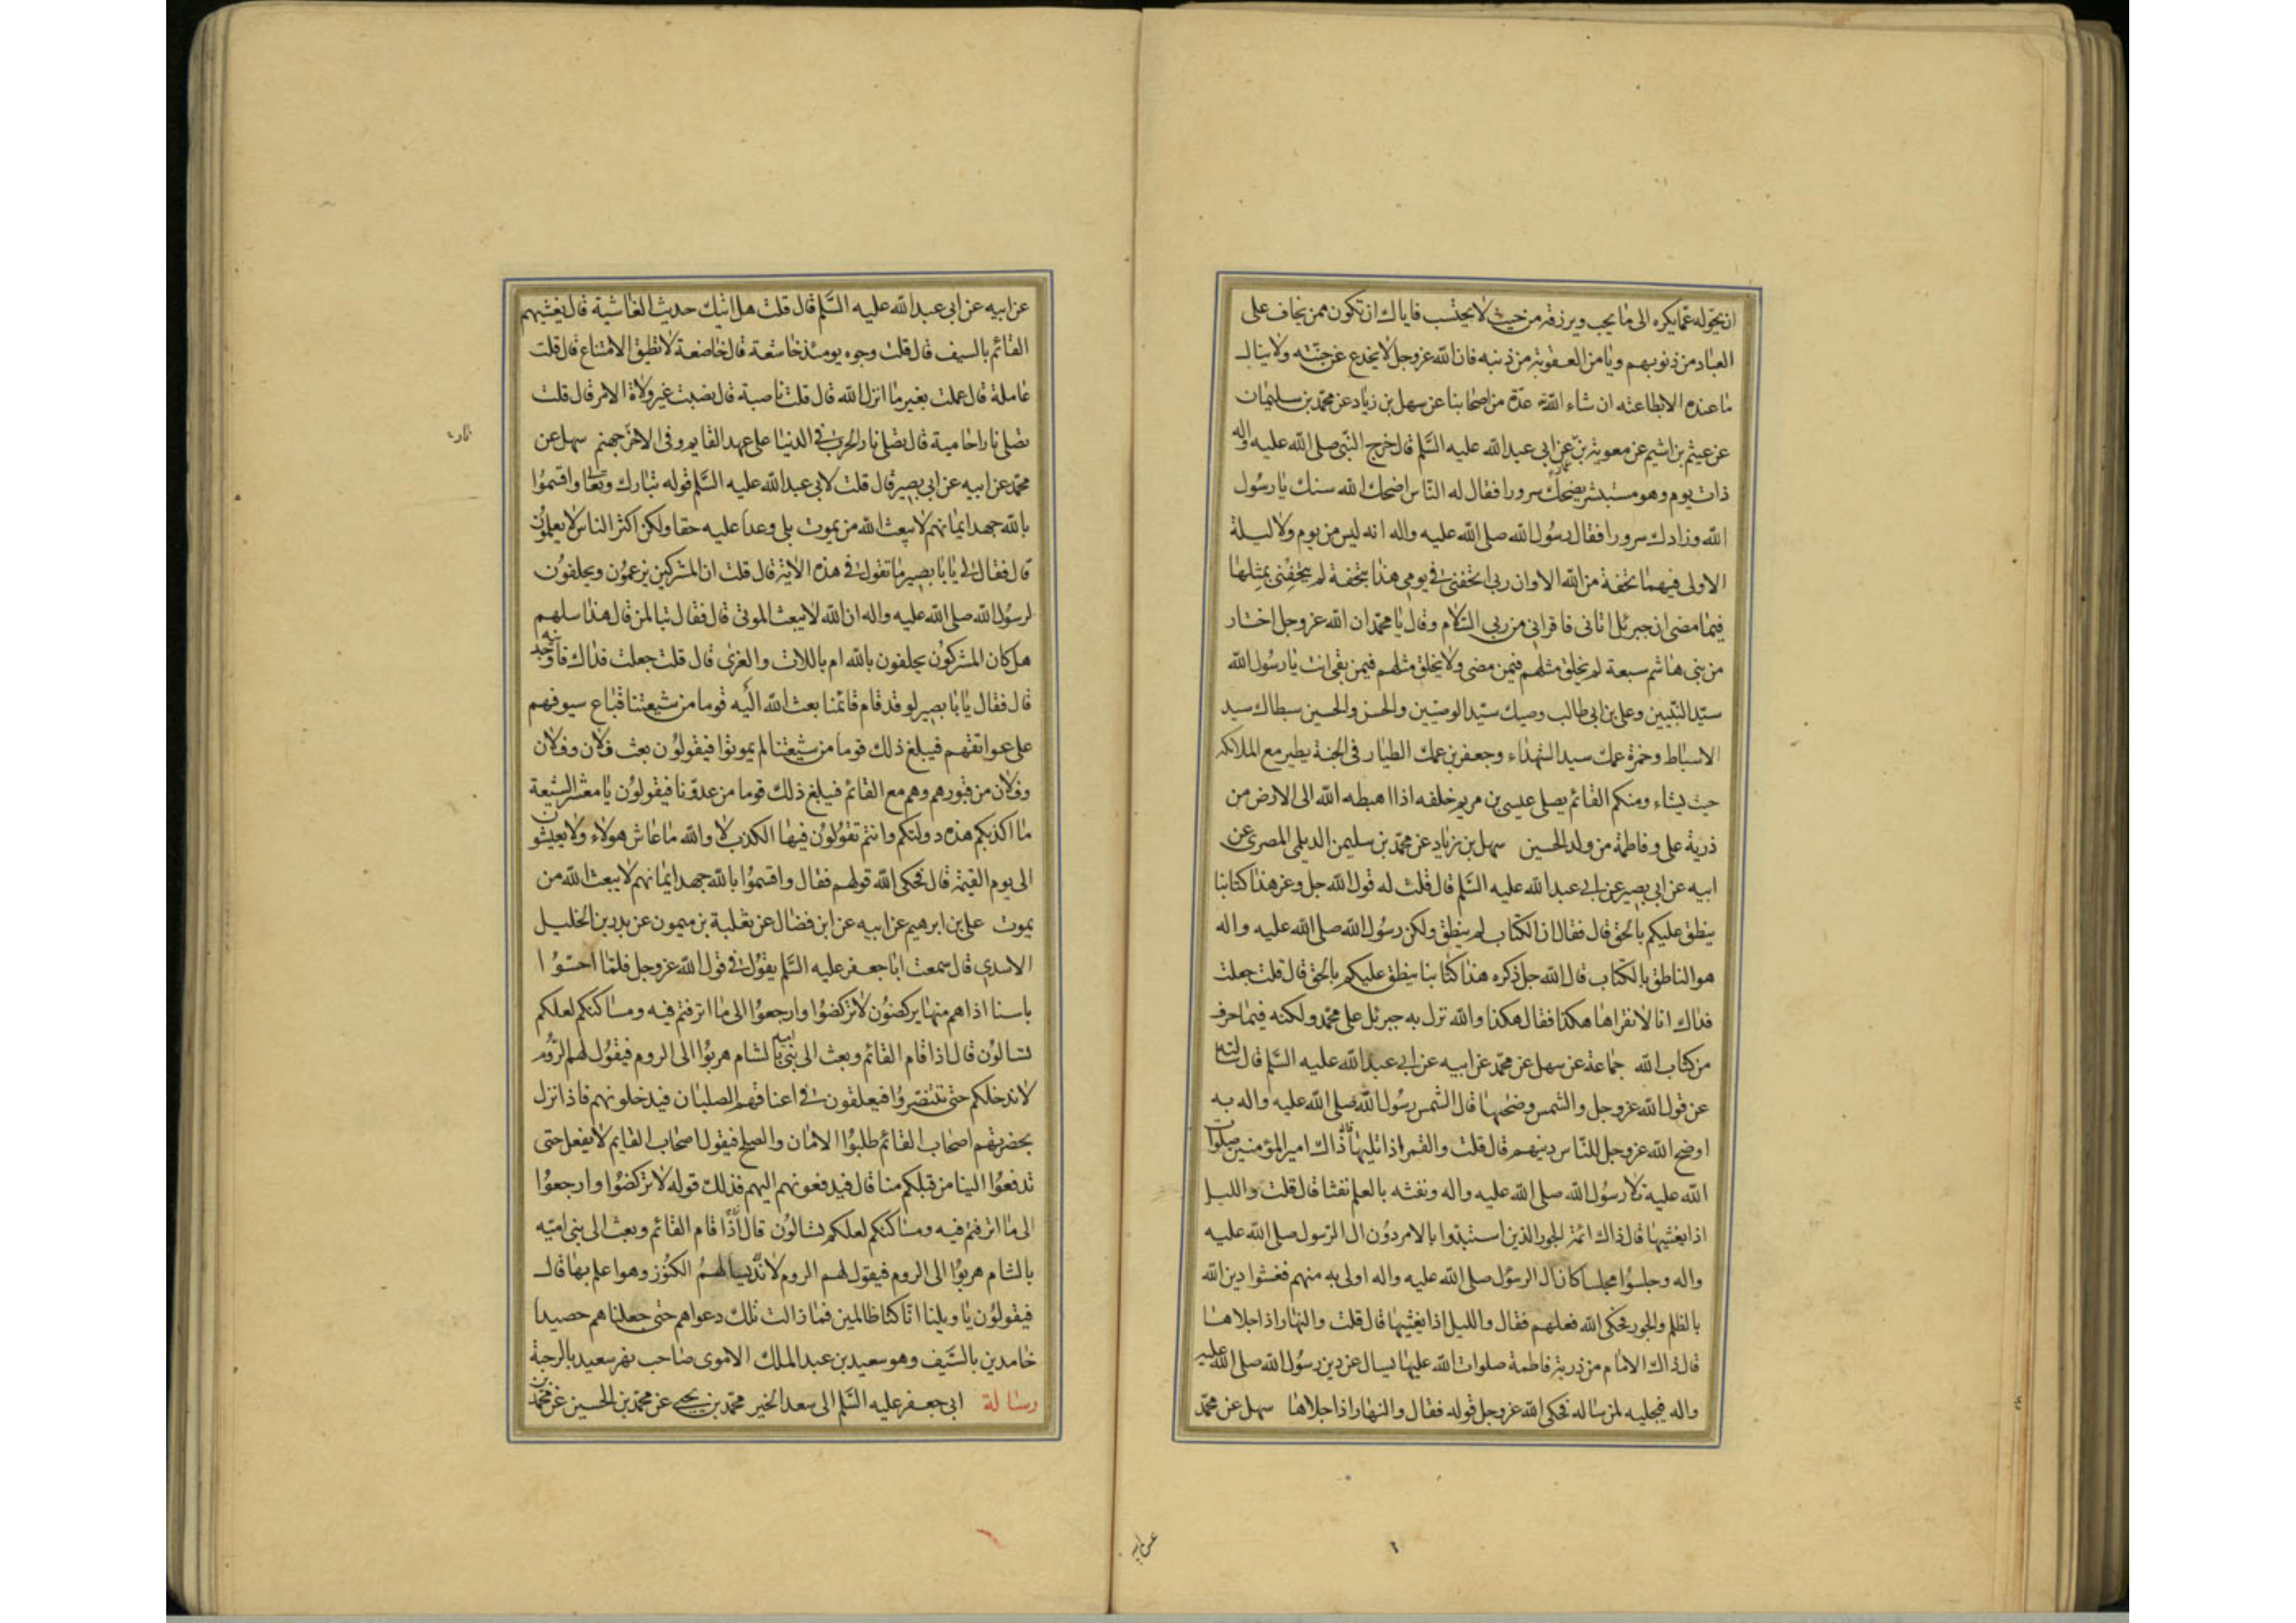 ان يحوله عما يكره الى ما يحب ويرزقه من حيث لا يحتسب فاياك ان تكون ممن يخاف على
العباد من ذنوبهم ويامن العقوبة من ذنبه فان الله عزوجل لا يخدع عن جنته ولا ينال
ما عنده الا بطاعته ان شاء الله عدة من اصحابنا عن سهل بن زياد عن محمد بن سليمان
عن عيثم بن اشيم عن معوية بن عمار عن ابي عبد الله عليه السلم قال خرج النبي صلى الله عليه واله
ذات يوم وهو مستبشر يضحك سرورا فقال له الناس اضحك الله سنك يا رسول
الله وزادك سرورا فقال رسول الله صلى الله عليه واله انه ليس من يوم ولا ليلة
الا ولى فيهما تحفة من الله الا وان ربي اتحفني في يومي هذا بتحفة لم يتحفني بمثلها
فيما مضى ان جبرئل اتاني فاقراني من ربي السلام وقال يا محمد ان الله عزوجل اختار
من بني هاشم سبعة لم يخلق مثلهم فيمن مضى ولا يخلق مثلهم فيمن بقى انت يا رسول الله
سيد النبيين وعلي بن ابي طالب وصيك سيد الوصيين والحسن والحسين سبطاك سيد
الاسباط وحمزة عمك سيد الشهداء وجعفر بن عمك الطيار في الجنة يطير مع الملائكة
حيث يشاء ومنكم القائم يصلي عيسى بن مريم خلفه اذا اهبطه الله الى الارض من
ذرية علي وفاطمة من ولد الحسين سهل بن زياد عن محمد بن سليمن الديلمي المصري عن
ابيه عن ابي بصير عن ابي عبد الله عليه السلم قال قلت له قول الله جل وعز هذا كتابنا
ينطق عليكم بالحق قال فقال ان الكتاب لم ينطق ولكن رسول الله صلى الله عليه واله
هو الناطق بالكتاب قال الله جل ذكره هذا كتابنا ينطق عليكم بالحق قال قلت جعلت
فداك انا لا نقراها هكذا فقال هكذا والله نزل به جبرئل على محمد ولكنه فيما حرف
من كتاب الله جماعة عن سهل عن محمد عن ابيه عن ابي عبد الله عليه السلم قال سالته
عن قول الله عزوجل والشمس وضحيها قال الشمس رسول الله صلى الله عليه واله به
اوضح الله عزوجل للناس دينهم قال قلت والقمر اذا تليها قال ذاك امير المؤمنين صلوات
الله عليه تلا رسول الله صلى الله عليه واله ونفثه بالعلم نفثا قال قلت والليل
اذا يغشيها قال ذاك ائمة الجور الذين استبدوا بالامر دون ال الرسول صلى الله عليه
واله وجلسوا مجلسا كان ال الرسول صلى الله عليه واله اولى به منهم فغشوا دين الله
بالظلم والجور فحكى الله فعلهم فقال والليل اذا يغشيها قال قلت والنهار اذا جلاها
قال ذاك الامام من ذرية فاطمة صلوات الله عليها يسال عن دين رسول الله صلى الله عليه
واله فيجليه لمن ساله فحكى الله عزوجل قوله فقال والنهار اذا جلاها سهل عن محمد
عن ابيه
عن ابيه عن ابي عبد الله عليه السلم قال قلت هل اتيك حديث الغاشية قال يغشيهم
القائم بالسيف قال قلت وجوه يومئذ خاشعة قال خاضعة لا تطيق الامتناع قال قلت
عاملة قال عملت بغير ما انزل الله قال قلت ناصبة قال نصبت غير ولاة الامر قال قلت
تصلى نارا حامية قال تصلى نار الحرب في الدنيا على عهد القايم وفي الاخرة جهنم سهل عن
محمد عن ابيه عن ابي بصير قال قلت لابي عبد الله عليه السلم قوله تبارك وتعا واقسموا
بالله جهد ايمانهم لا يبعث الله من يموت بلى وعدا عليه حقا ولكن اكثر الناس لا يعلمون
قال فقال لي يا با بصير ما تقول في هذه الاية قال قلت ان المشركين يزعمون ويحلفون
لرسول الله صلى الله عليه واله ان الله لا يبعث الموتى قال فقال تبا لمن قال هذا سلهم
هل كان المشركون يحلفون بالله ام باللات والعزى قال قلت جعلت فداك فاوجدنيه
قال فقال يا با بصير لو قد قام قائمنا بعث الله اليه قوما من شيعتنا قباع سيوفهم
على عواتقهم فيبلغ ذلك قوما من شيعتنا لم يموتوا فيقولون بعث فلان وفلان
وفلان من قبورهم وهم مع القائم فيبلغ ذلك قوما من عدونا فيقولون يا معشر الشيعة
ما اكذبكم هذه دولتكم وانتم تقولون فيها الكذب لا والله ما عاش هولاء ولا يعيشون
الى يوم القيمة قال فحكى الله قولهم فقال واقسموا بالله جهد ايمانهم لا يبعث الله من
يموت علي بن ابرهيم عن ابيه عن ابن فضال عن ثعلبة بن ميمون عن بدر بن الخليل
الاسدي قال سمعت ابا جعفر عليه السلم يقول في قول الله عزوجل فلما احسوا
باسنا اذا هم منها يركضون لا تركضوا وارجعوا الى ما اترفتم فيه ومساكنكم لعلكم
تسالون قال اذا قام القائم وبعث الى بني امية بالشام هربوا الى الروم فيقول لهم الروم
لا ندخلكم حتى تتنصروا فيعلقون في اعناقهم الصلبان فيدخلونهم فاذا نزل
بحضرتهم اصحاب القائم طلبوا الامان والصلح فيقول اصحاب القايم لا نفعل حتى
تدفعوا الينا من قبلكم منا قال فيدفعونهم اليهم فذلك قوله لا تركضوا وارجعوا
الى ما اترفتم فيه ومساكنكم لعلكم تسالون قال اذا قام القائم وبعث الى بني امية
بالشام هربوا الى الروم فيقول لهم الروم لا الكنوز وهو اعلم بها قال
فيقولون يا ويلنا انا كنا ظالمين فما زالت تلك دعواهم حتى جعلناهم حصيدا
خامدين بالسيف وهو سعيد بن عبد الملك الاموي صاحب نهر سعيد بالرحبة
رسالة ابي جعفر عليه السلم الى سعد الخير محمد بن يحيى عن محمد بن الحسين عن محمد بن